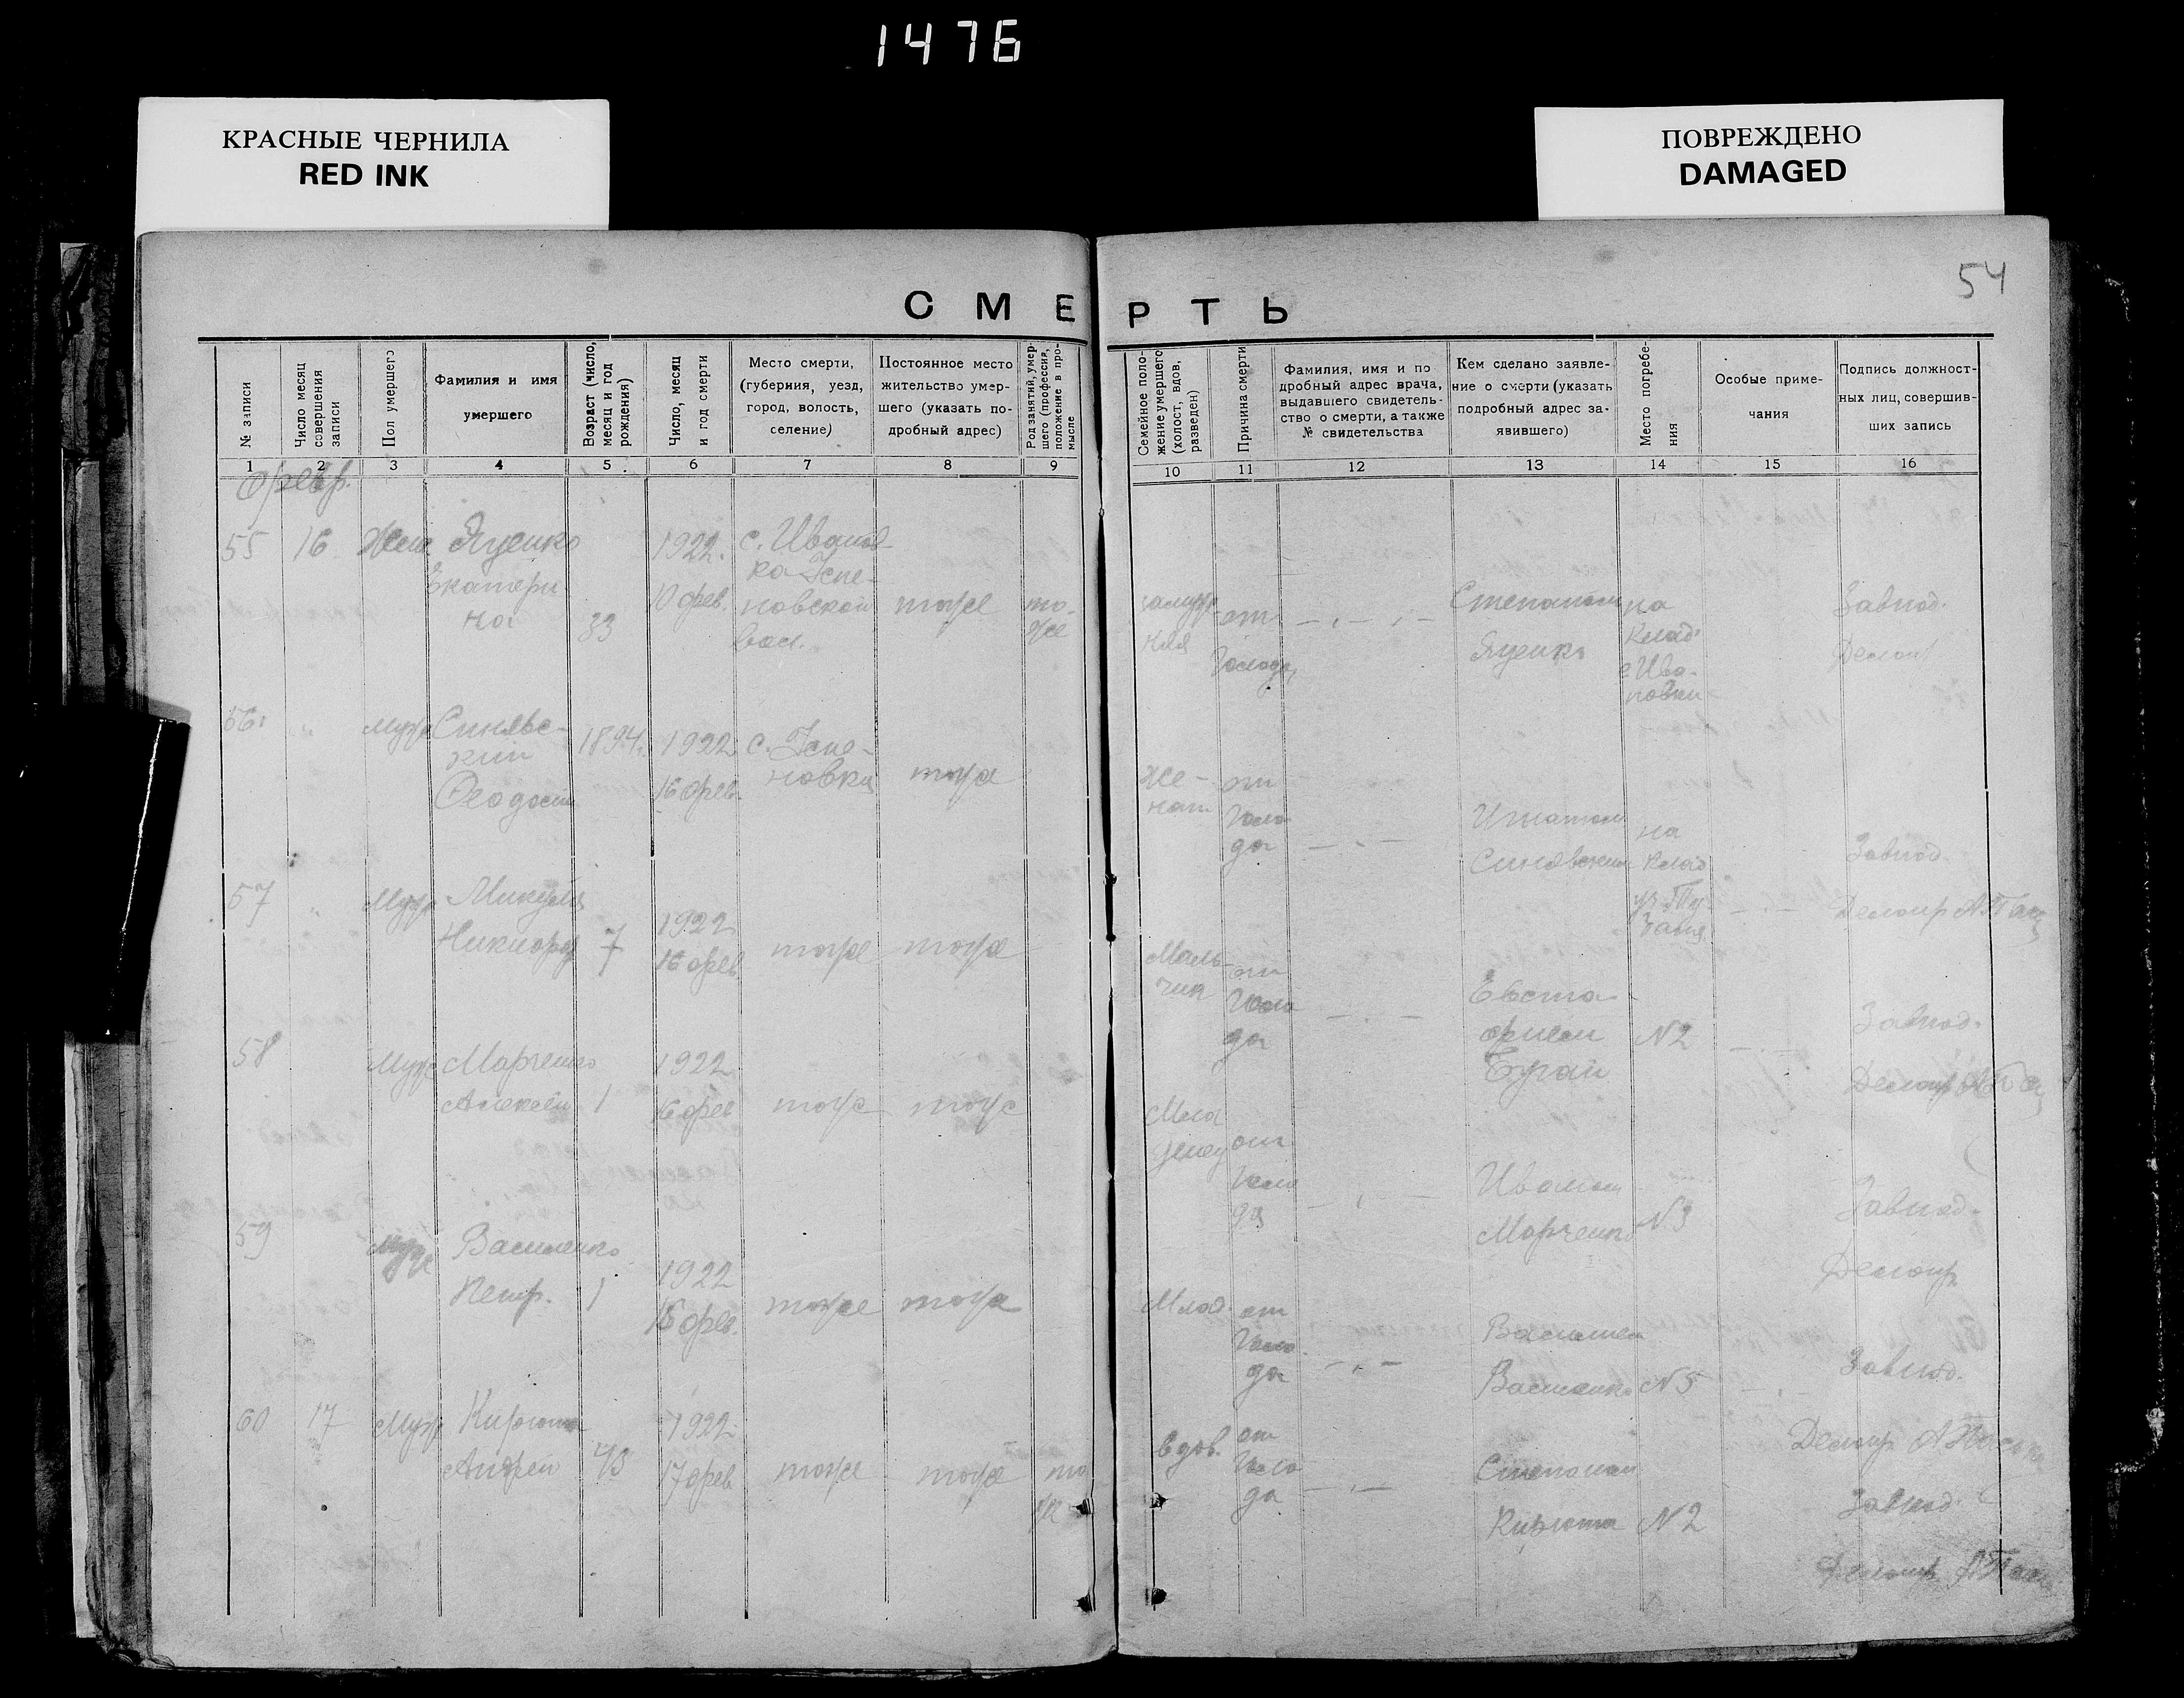 1476
КРАСНЫЕ ЧЕРНИЛА
RED INK
ПОВРЕЖДЕНО
DAMAGED
54
СМЕРТЬ
№ записи
Число месяц совершения записи
Пол умершего
Фамилия и имя
умершего
Возраст (число, месяц и год рождения)
Число, месяц и год смерти
Место смерти,
(губерния, уезд,
город, волость,
селение)
Постоянное место
жительство умер-
шего (указать по-
дробный адрес)
Род занятий, умер-
шего (профессия,
положение в про-
мысле
Семейное поло-
жение умершего
(холост, вдов,
разведен)
Причина смерти
Фамилия, имя и по
дробный адрес врача,
выдавшего свидетель-
ство о смерти, а также
№ свидетельства
Кем сделано заявле-
ние о смерти (указать
подробный адрес за-
явившего)
Место погребе-
ния
Особые приме-
чания
Подпись должност-
ных лиц, совершив-
ших запись
1 2 3 4 5 6 7 8 9 10 11 12 13 14 15 16
февр.
55 16 Жен Яценко
Екатери
на
33
1922.
10 фев.
с. Иванов-
ка Успе-
новской
вол.
тоже
то-
же
замуж
няя
от
Голода
Степаном
Яценко
на
Клад.
с Ива-
новки
Завпод.
56 " муж Синявс-
кий
Феодосий
1894 1922
16 фев.
с. Успе-
новка
тоже
Же-
нат
от
Голо
да
Игнатом
Синявским
на
Клад
Завпод.
57 " Муж Микуля
Никифор
7
1922
16 фев
тоже тоже
Маль-
чик
от
Голо
да
Евста-
фием
Бугай
N2
Завпод.
58 Муж Марченко
Алексей
1
1922
16 фев
тоже тоже
Мла
денец
от
Голо
да
Иваном
Марченко
N3
Завпод.
59 муж Василенко
Петр.
1
1922
15 фев.
тоже тоже
Млад.
от
Голо
да
Василием
Василенко
N5
Завпод.
60 17 Муж Кирюта
Андрей
43
1922
17 фев
тоже тоже то
же
вдов.
от
Голо
да
Степаном
Кирюта
N2
Завпод.